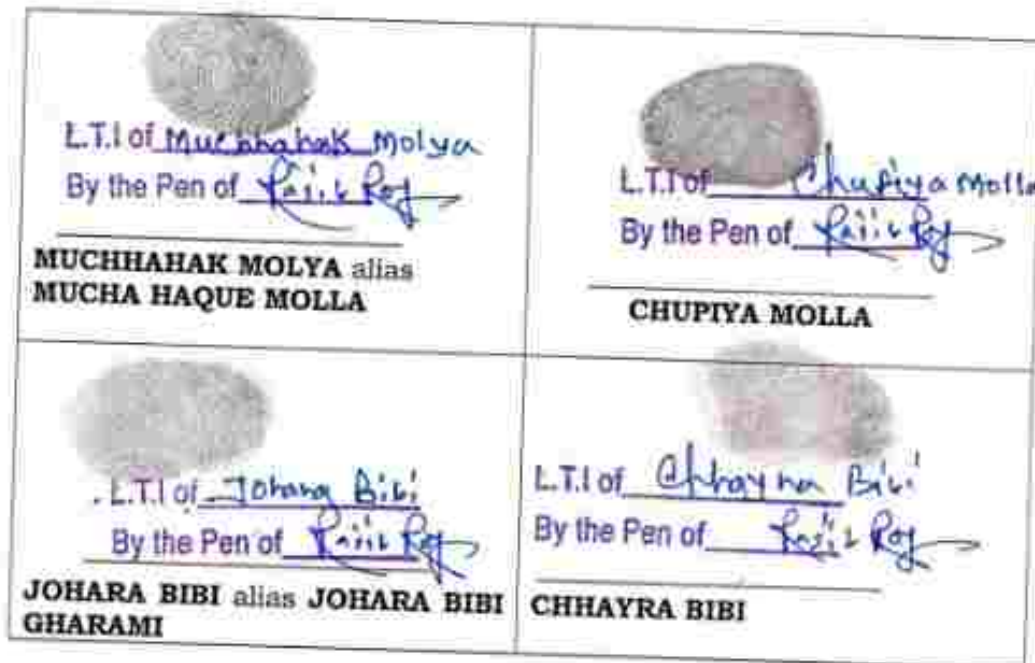 L.T.I of Muchhahak Molya
By the Pen of Rajib Roy
MUCHHAHAK MOLYA alias
MUCHA HAQUE MOLLA
L.T.I of Chupiya Molla
By the Pen of Rajib Roy
CHUPIYA MOLLA
L.T.I of Johara Bibi
By the Pen of Rajib Roy
JOHARA BIBI alias JOHARA BIBI
GHARAMI
L.T.I of Chhayra Bibi
By the Pen of Rajib Roy
CHHAYRA BIBI